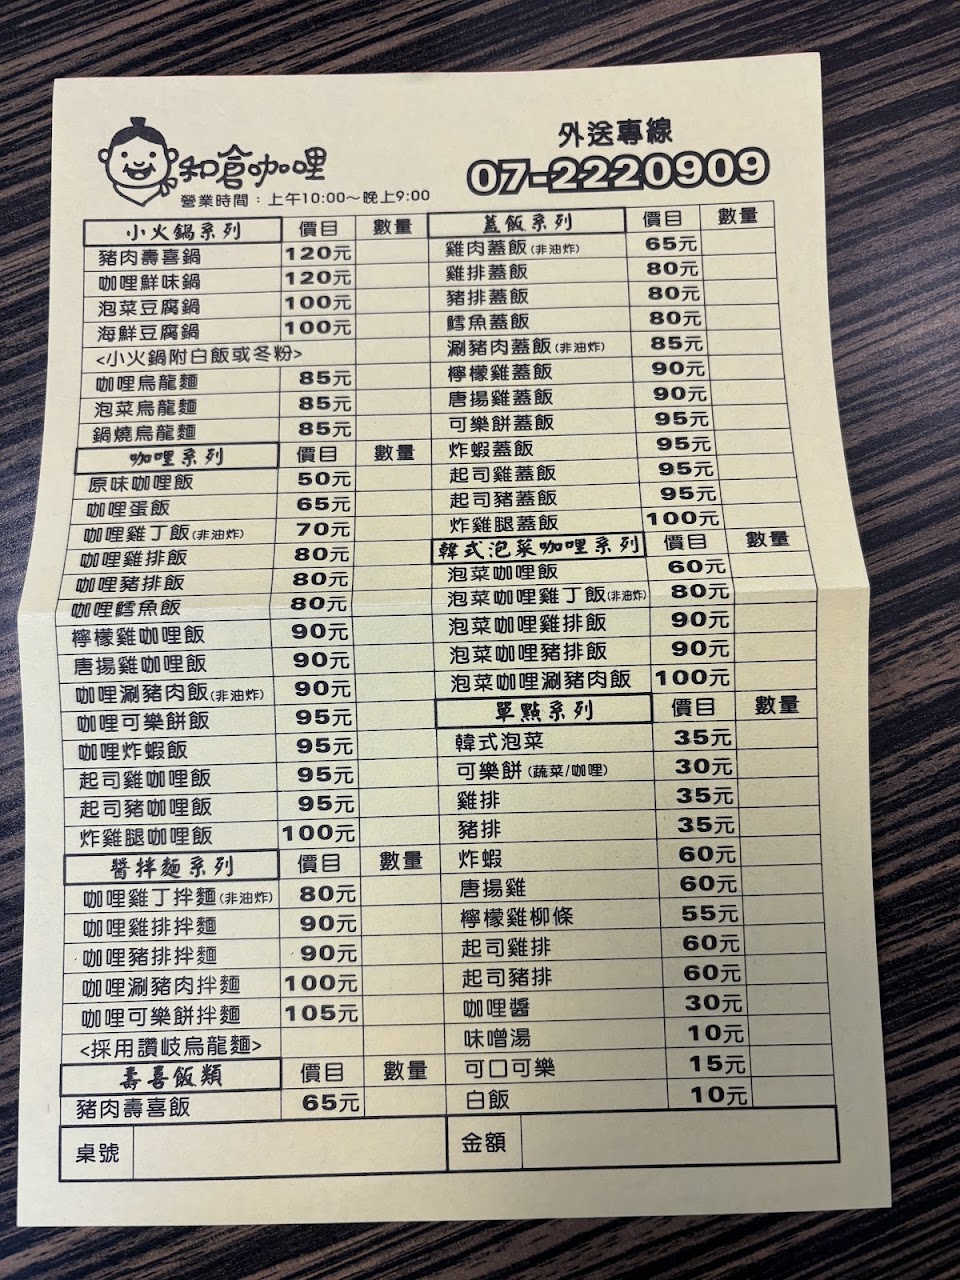 和倉咖哩
營業時間：上午10:00～晚上9:00
外送專線
07-2220909
小火鍋系列 價目 數量
豬肉壽喜鍋 120元
咖哩鮮味鍋 120元
泡菜豆腐鍋 100元
海鮮豆腐鍋 100元
<小火鍋附白飯或冬粉>
咖哩烏龍麵 85元
泡菜烏龍麵 85元
鍋燒烏龍麵 85元
咖哩系列 價目 數量
原味咖哩飯 50元
咖哩蛋飯 65元
咖哩雞丁飯(非油炸) 70元
咖哩雞排飯 80元
咖哩豬排飯 80元
咖哩鱈魚飯 80元
檸檬雞咖哩飯 90元
唐揚雞咖哩飯 90元
咖哩涮豬肉飯(非油炸) 90元
咖哩可樂餅飯 95元
咖哩炸蝦飯 95元
起司雞咖哩飯 95元
起司豬咖哩飯 95元
炸雞腿咖哩飯 100元
醬拌麵系列 價目 數量
咖哩雞丁拌麵(非油炸) 80元
咖哩雞排拌麵 90元
咖哩豬排拌麵 90元
咖哩涮豬肉拌麵 100元
咖哩可樂餅拌麵 105元
<採用讚岐烏龍麵>
壽喜飯類 價目 數量
豬肉壽喜飯 65元
蓋飯系列 價目 數量
雞肉蓋飯(非油炸) 65元
雞排蓋飯 80元
豬排蓋飯 80元
鱈魚蓋飯 80元
涮豬肉蓋飯(非油炸) 85元
檸檬雞蓋飯 90元
唐揚雞蓋飯 90元
可樂餅蓋飯 95元
炸蝦蓋飯 95元
起司雞蓋飯 95元
起司豬蓋飯 95元
炸雞腿蓋飯 100元
韓式泡菜咖哩系列 價目 數量
泡菜咖哩飯 60元
泡菜咖哩雞丁飯(非油炸) 80元
泡菜咖哩雞排飯 90元
泡菜咖哩豬排飯 90元
泡菜咖哩涮豬肉飯 100元
單點系列 價目 數量
韓式泡菜 35元
可樂餅(蔬菜/咖哩) 30元
雞排 35元
豬排 35元
炸蝦 60元
唐揚雞 60元
檸檬雞柳條 55元
起司雞排 60元
起司豬排 60元
咖哩醬 30元
味噌湯 10元
可口可樂 15元
白飯 10元
桌號 金額